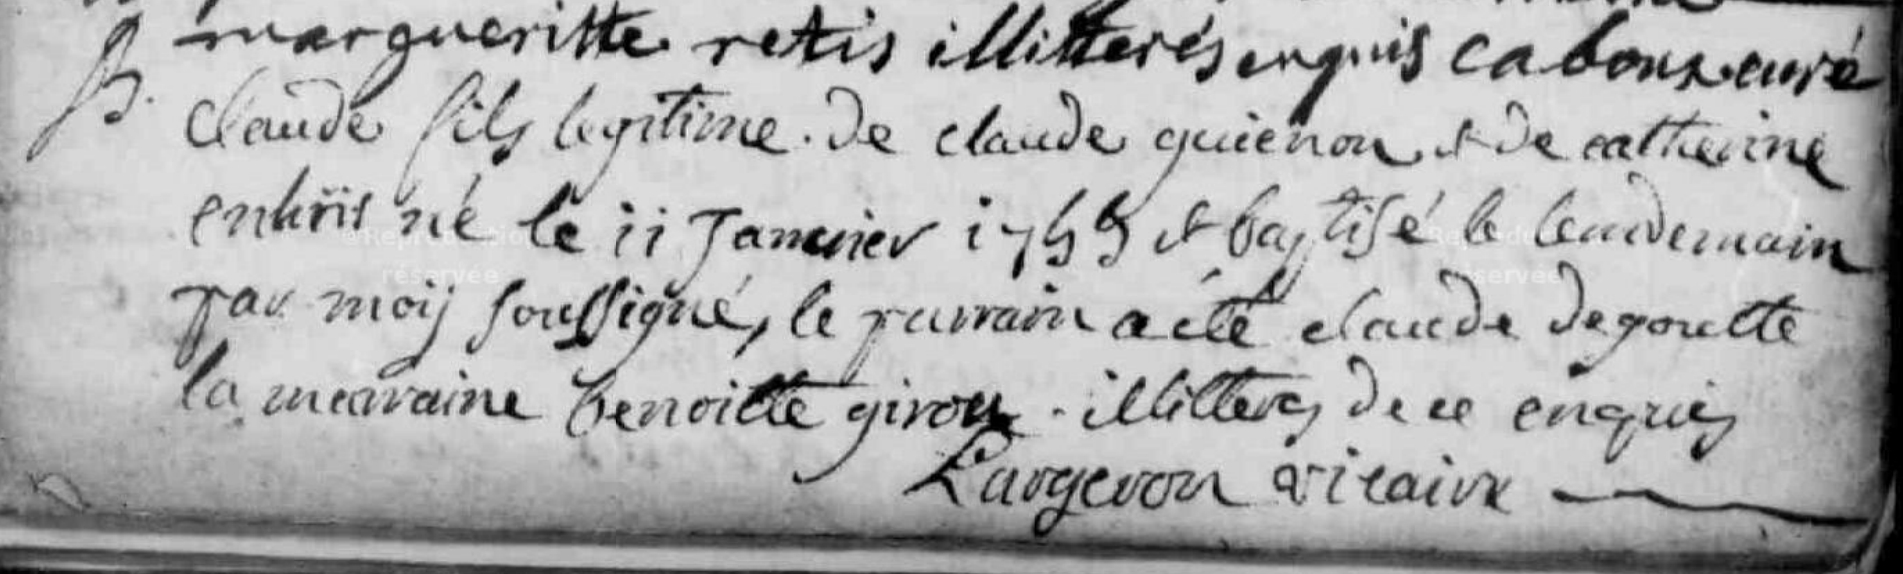 margueritte retis illitterés enquis cabour curé
B. claude fils legitime. de claude guienon & de catherine
né le 11 Janvier 1755 & baptisé le lendemain
par moij soussigné, le parrain a été claude degoutte
la marraine benoitte giron. illitteres de ce enquis
Largeron vicaire